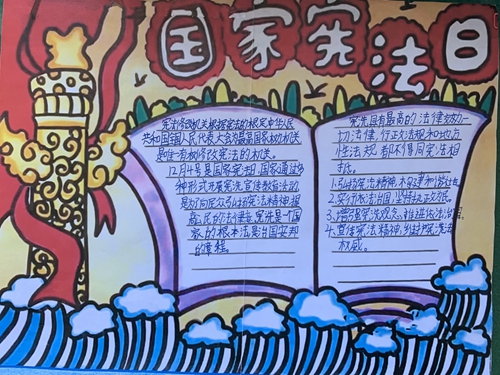 国家宪法日
宪法修改机关根据宪法的规定中华人民
共和国全国人民代表大会为最高国家权力机关
是唯一有权修改宪法的机关。
12月4号是国家宪法日,国家通过多
种形式开展宪法宣传教育活动
是为向民众弘扬宪法精神提
高人民的法律
宪法是一个国
家的根本法是治国安邦
的章程。
宪法具有最高的法律效力,一
切法律,行政法规和地方
性法规都不得同宪法相
抵。
1.弘扬宪法精神,
2.实行依法治国,
3.增强宪法观念,推进依法治
4.宣传宪法精神,维护宪法
权威。